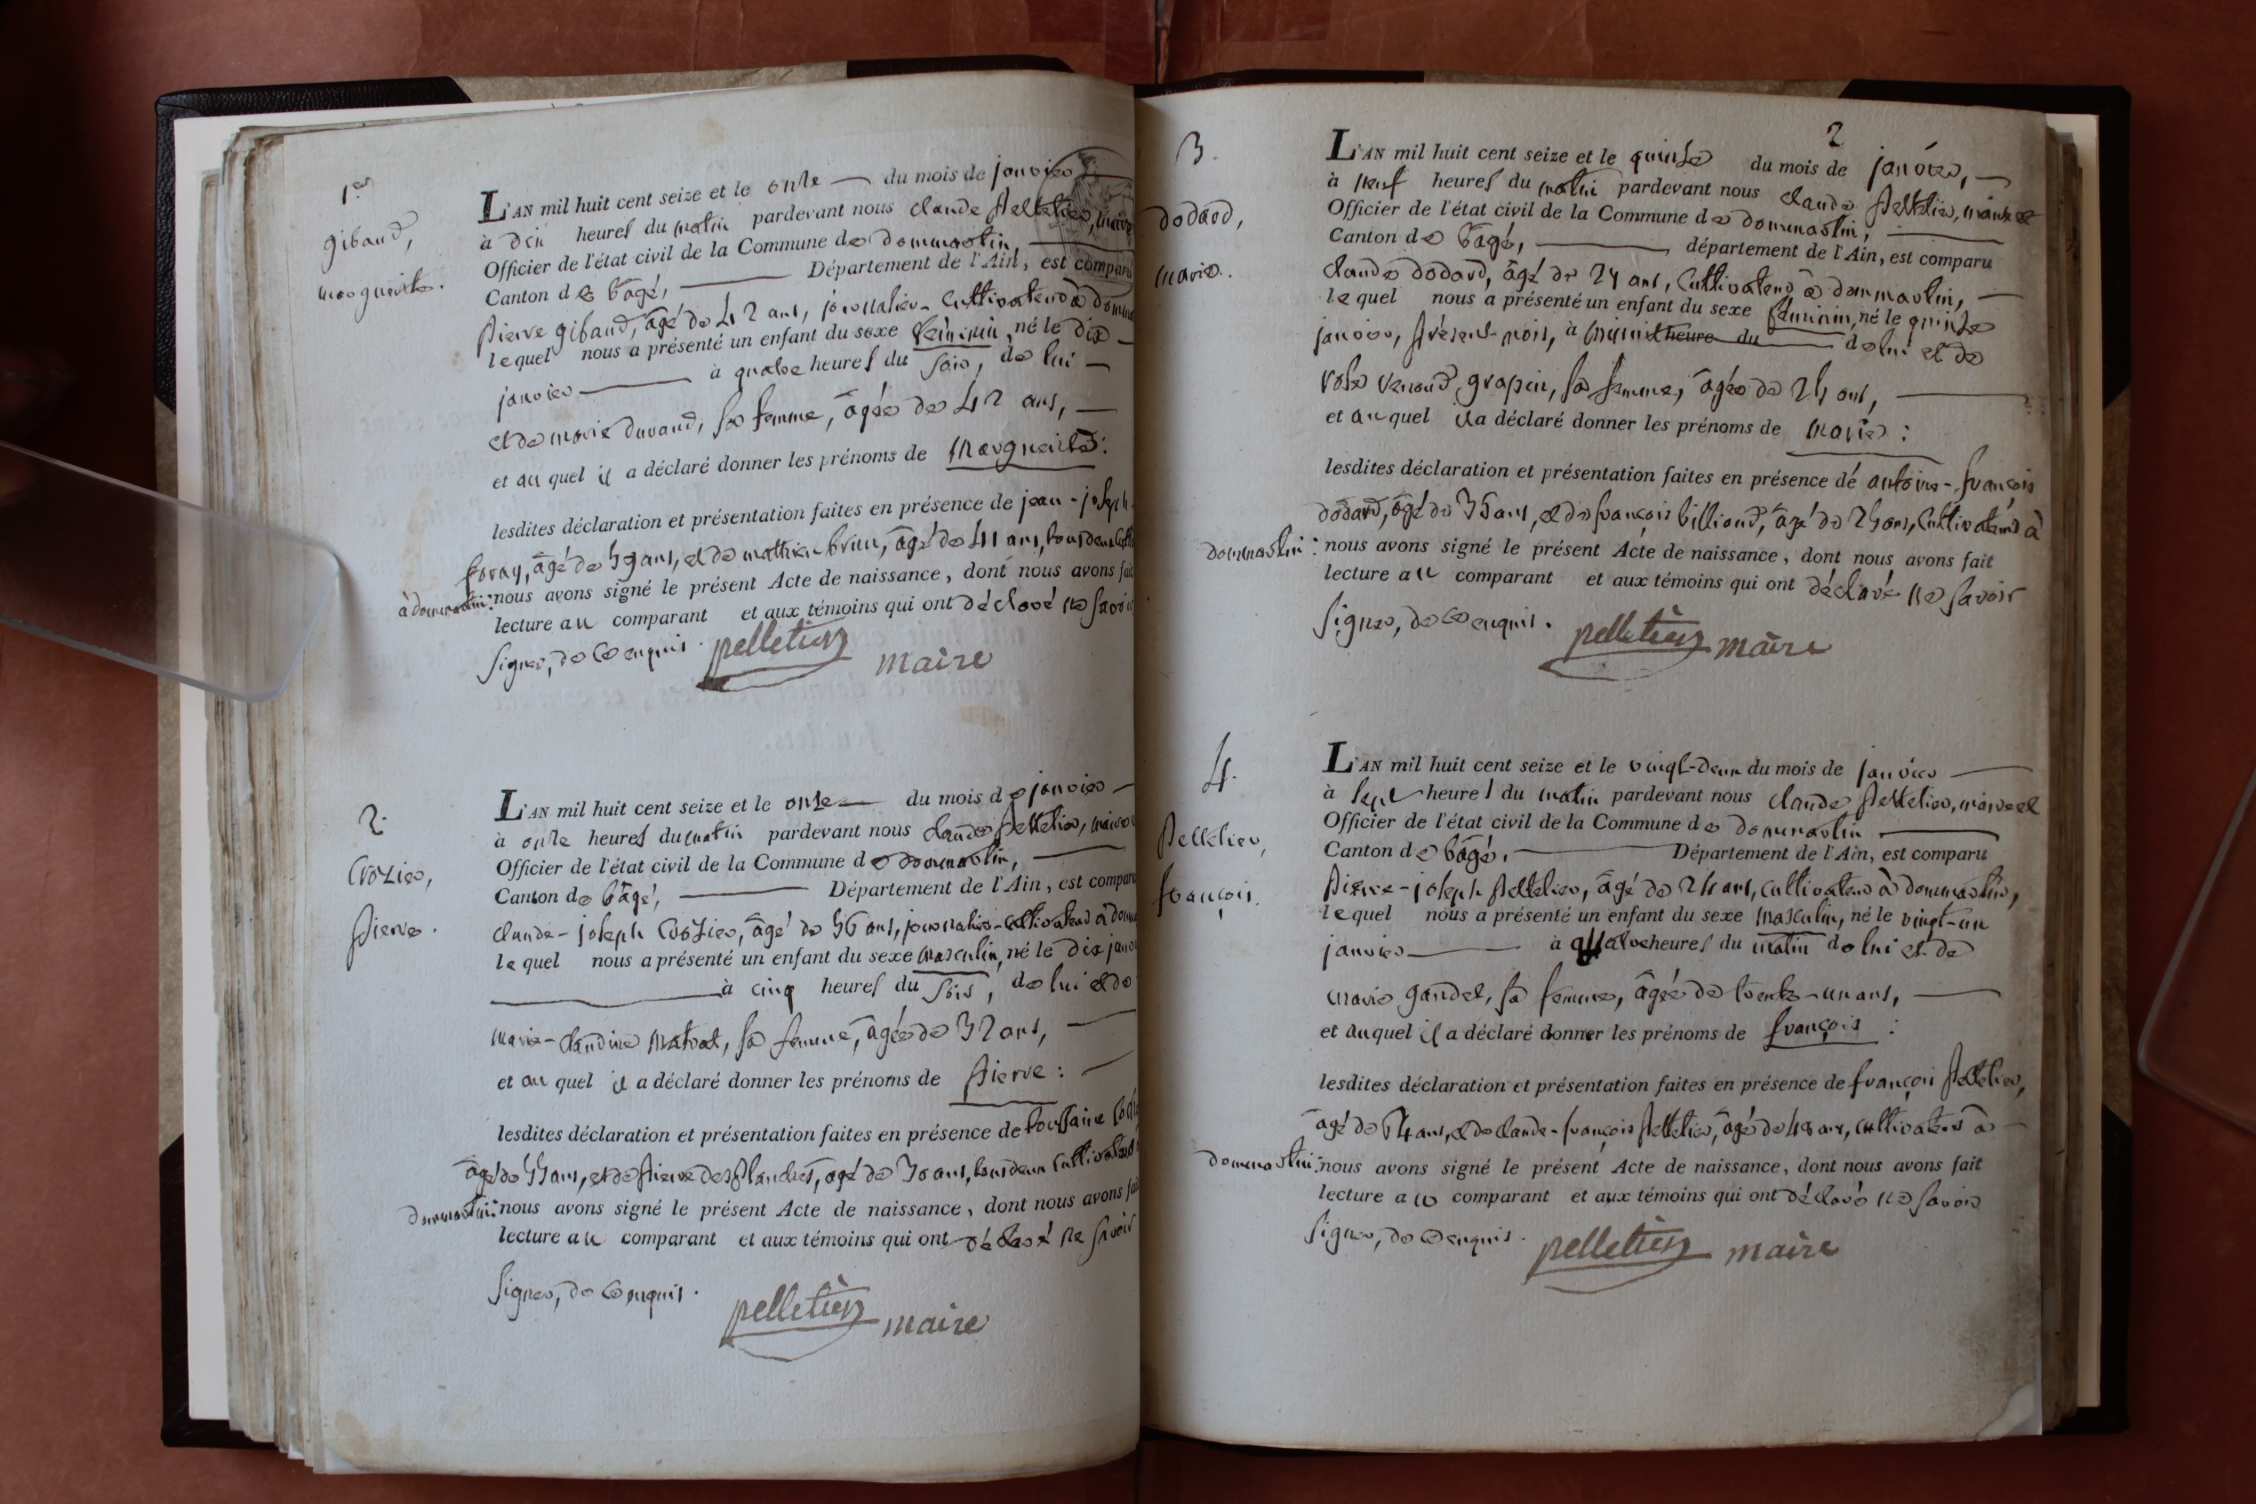 1.er
gibaud,
marguerite.
L'AN mil huit cent seize et le onze — du mois de janvier
à dix heures du matin pardevant nous claude Pelletier, maire
Officier de l'état civil de la Commune de dommartin,
Canton de bâgé, Département de l'Ain, est comparu
Pierre gibaud, âgé de 42 ans, journalier-cultivateur à domm
lequel nous a présenté un enfant du sexe féminin, né le dix
janvier à quatre heures du soir, de lui
et de marie durand, sa femme, âgée de 42 ans,
et au quel il a déclaré donner les prénoms de Marguerite:
lesdites déclaration et présentation faites en présence de jean-joseph
foray, âgé de 59 ans, et de mathieu brun, âgé de 41 ans, tous deux
à dommartin: nous avons signé le présent Acte de naissance, dont nous avons fait
lecture au comparant et aux témoins qui ont déclaré ne savoir
signer, de ce enquis. pelletier maire
2.
Crozier,
Pierre.
L'AN mil huit cent seize et le onze du mois de janvier
à onze heures du matin pardevant nous claude Pelletier, maire
Officier de l'état civil de la Commune de dommartin,
Canton de bâgé, Département de l'Ain, est comparu
claude-joseph Crozier, âgé de 36 ans, journalier-cultivateur à domm
lequel nous a présenté un enfant du sexe masculin, né le dix janv
à cinq heures du soir, de lui et de
marie-claudine Matrat, sa femme, âgée de 32 ans,
et au quel il a déclaré donner les prénoms de Pierre:
lesdites déclaration et présentation faites en présence de toussaint
âgé de 55 ans, et de Pierre desplanches, âgé de 30 ans, tous deux cultivateurs
dommartin: nous avons signé le présent Acte de naissance, dont nous avons fai
lecture au comparant et aux témoins qui ont déclaré ne savoir
signer, de ce enquis.
pelletier maire
2
3.
dodard,
marie.
L'AN mil huit cent seize et le quinze du mois de janvier,
à neuf heures du matin pardevant nous claude Pelletier, maire et
Officier de l'état civil de la Commune de dommartin,
Canton de bâgé, département de l'Ain, est comparu
claude dodard, âgé de 24 ans, cultivateur à dommartin,
lequel nous a présenté un enfant du sexe féminin, né le quinze
janvier, présent mois, à minuit heure du de lui et de
rose renoud grapin, sa femme, âgée de 24 ans,
et au quel il a déclaré donner les prénoms de marie:
lesdites déclaration et présentation faites en présence de antoine-françois
dodard, âgé de 35 ans, et de françois billioud, âgé de 25 ans, cultivateurs à
dommartin: nous avons signé le présent Acte de naissance, dont nous avons fait
lecture au comparant et aux témoins qui ont déclaré ne savoir
signer, de ce enquis. pelletier maire
4.
Pelletier,
françois.
L'AN mil huit cent seize et le vingt-deux du mois de janvier
à sept heures du matin pardevant nous claude Pelletier, maire et
Officier de l'état civil de la Commune de dommartin
Canton de bâgé, Département de l'Ain, est comparu
Pierre-joseph Pelletier, âgé de 24 ans, cultivateur à dommartin,
lequel nous a présenté un enfant du sexe masculin, né le vingt-un
janvier à quatre heures du matin de lui et de
marie gandel, sa femme, âgée de trente-un ans,
et auquel il a déclaré donner les prénoms de françois:
lesdites déclaration et présentation faites en présence de françois Pelletier,
âgé de 64 ans, et de claude-françois Pelletier, âgé de 48 ans, cultivateurs à
dommartin: nous avons signé le présent Acte de naissance, dont nous avons fait
lecture au comparant et aux témoins qui ont déclaré ne savoir
signer, de ce enquis. pelletier maire